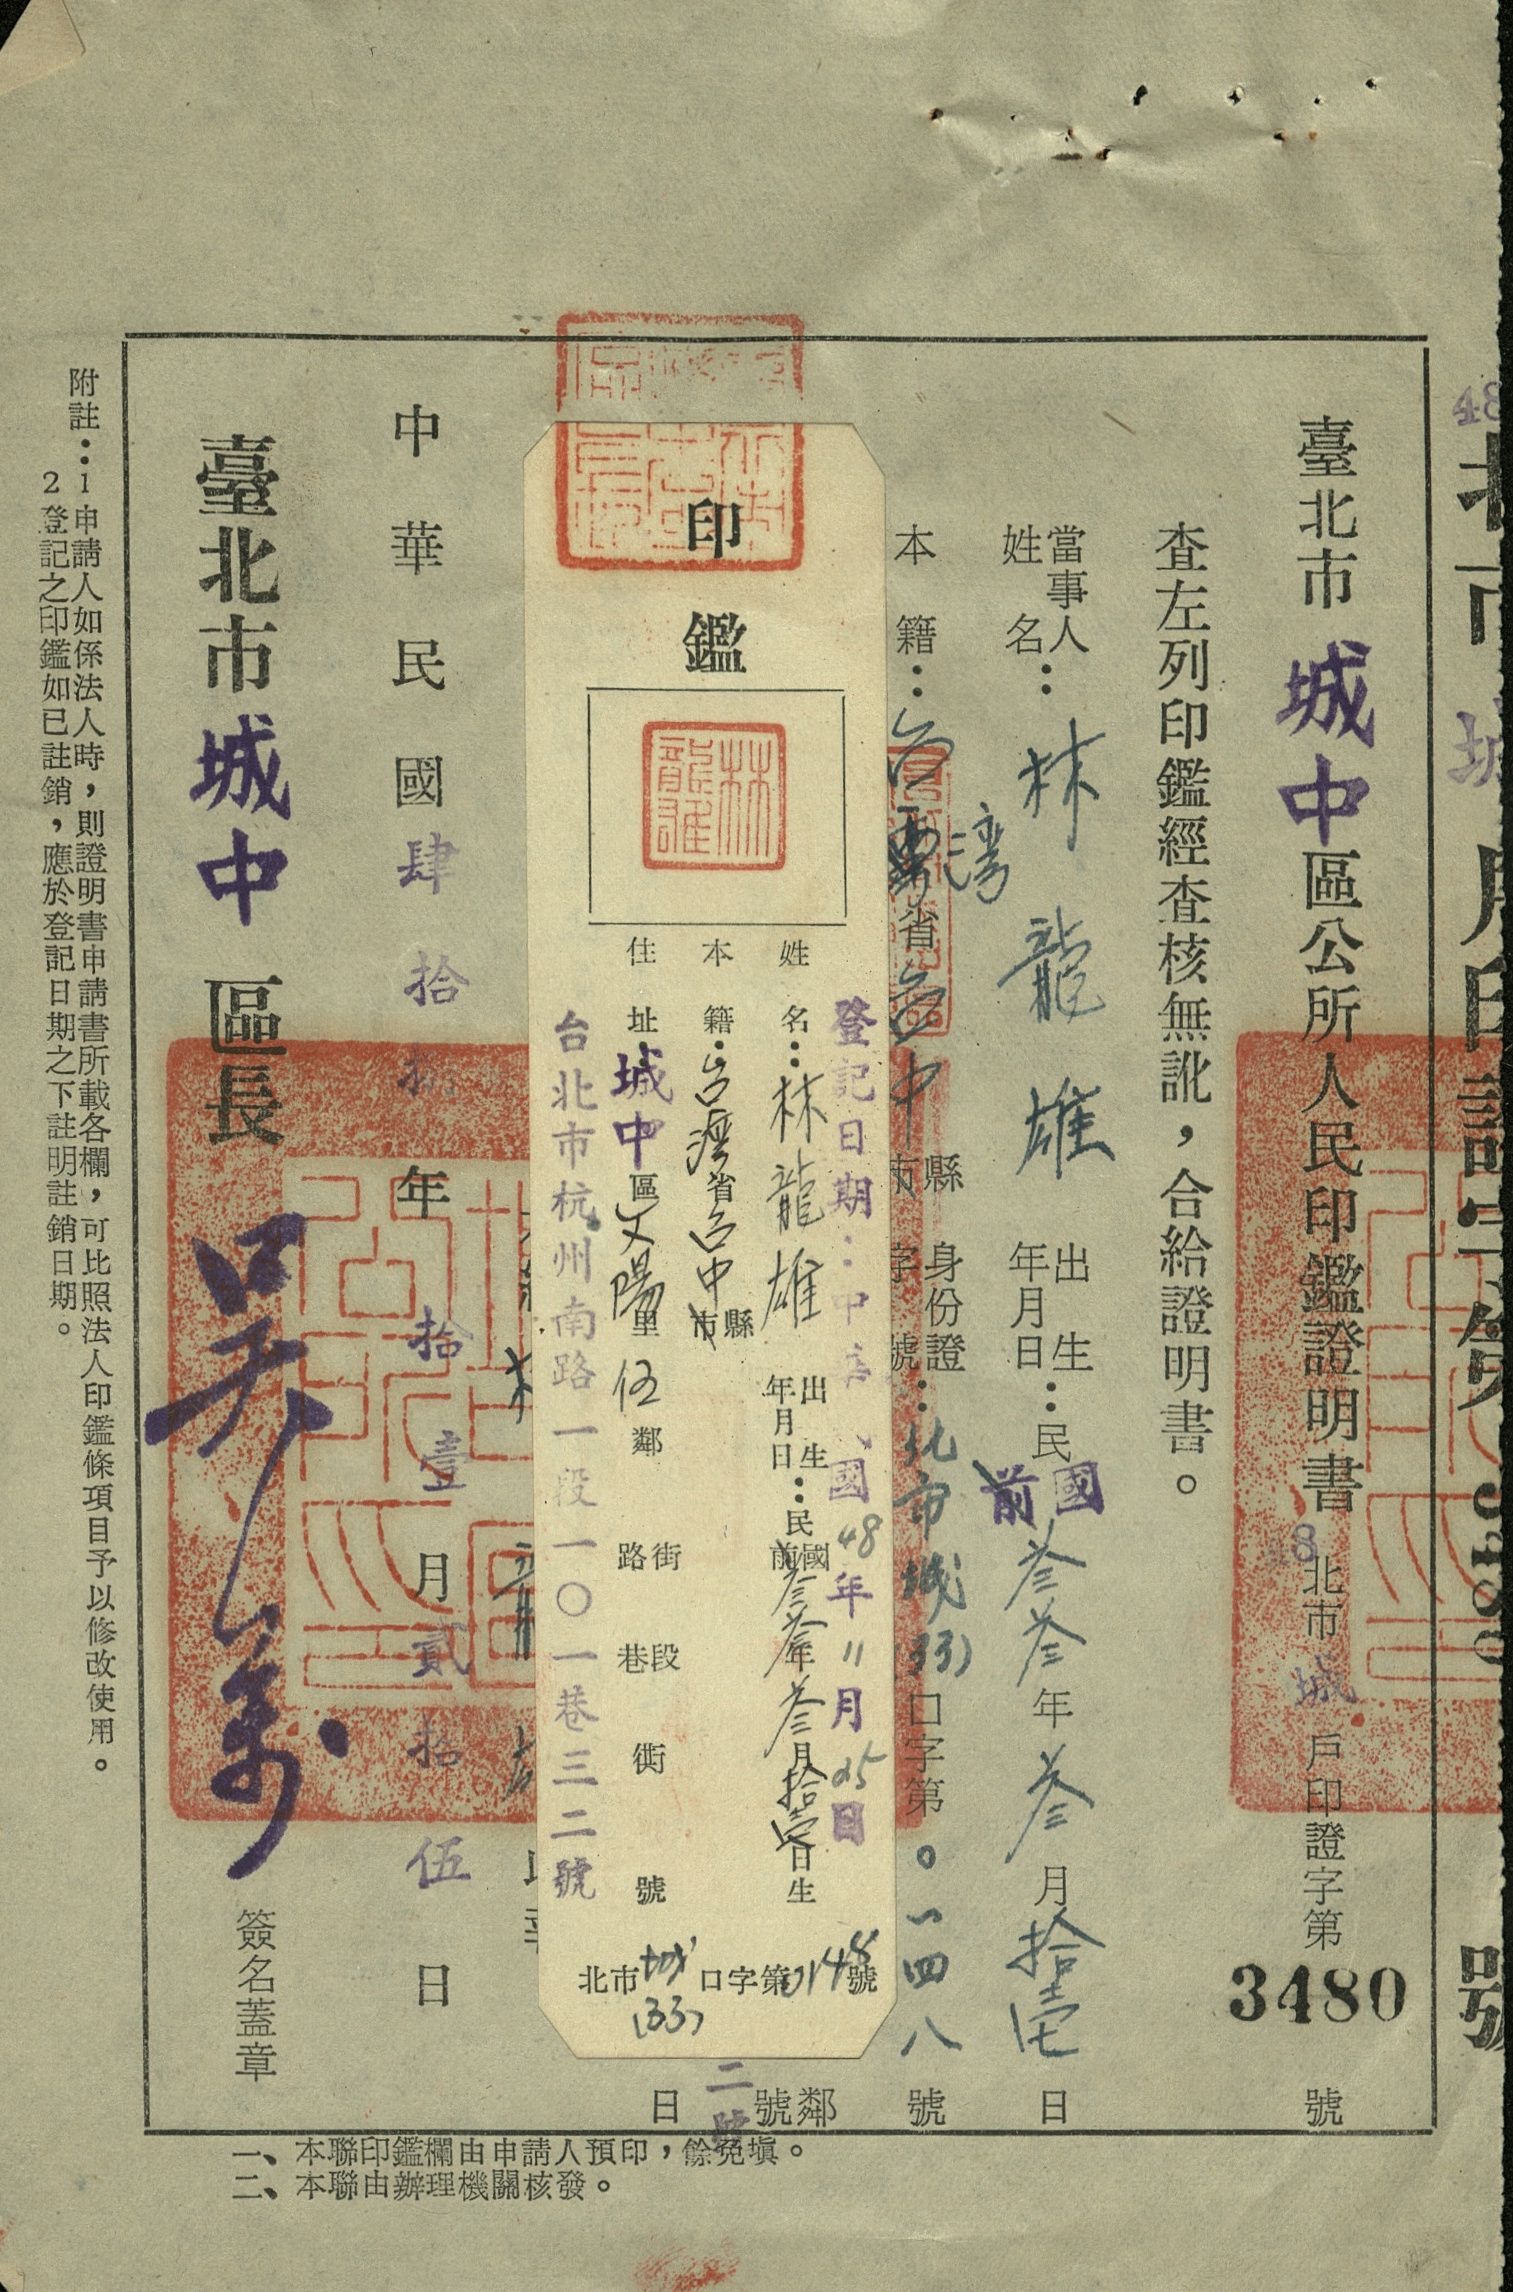 臺北市城中區公所人民印鑑證明書
48北市城戶印證字第3480號
查左列印鑑經查核無訛，合給證明書。
當事人姓名：林龍雄
出生年月日：民國前叁叁年叁月拾壹日
本籍：台灣省台中縣市
身份證字號：北市城(33)口字第〇一四八號
鄰號
二號
日
印鑑
林龍雄
登記日期：中 國48年11月25日
姓名：林龍雄
出生年月日：民國前叁叁年叁月拾壹日生
本籍：台灣省台中縣市
住址：城中區文陽里伍鄰街路段巷衖號
台北市杭州南路一段一〇一巷三二號
北市城(33)口字第0148號
中華民國肆拾捌年拾壹月貳拾伍日
臺北市城中區長
吳
簽名蓋章
附註：1申請人如係法人時，則證明書申請書所載各欄，可比照法人印鑑條項目予以修改使用。
2登記之印鑑如已註銷，應於登記日期之下註明註銷日期。
一、本聯印鑑欄由申請人預印，餘免塡。
二、本聯由辦理機關核發。